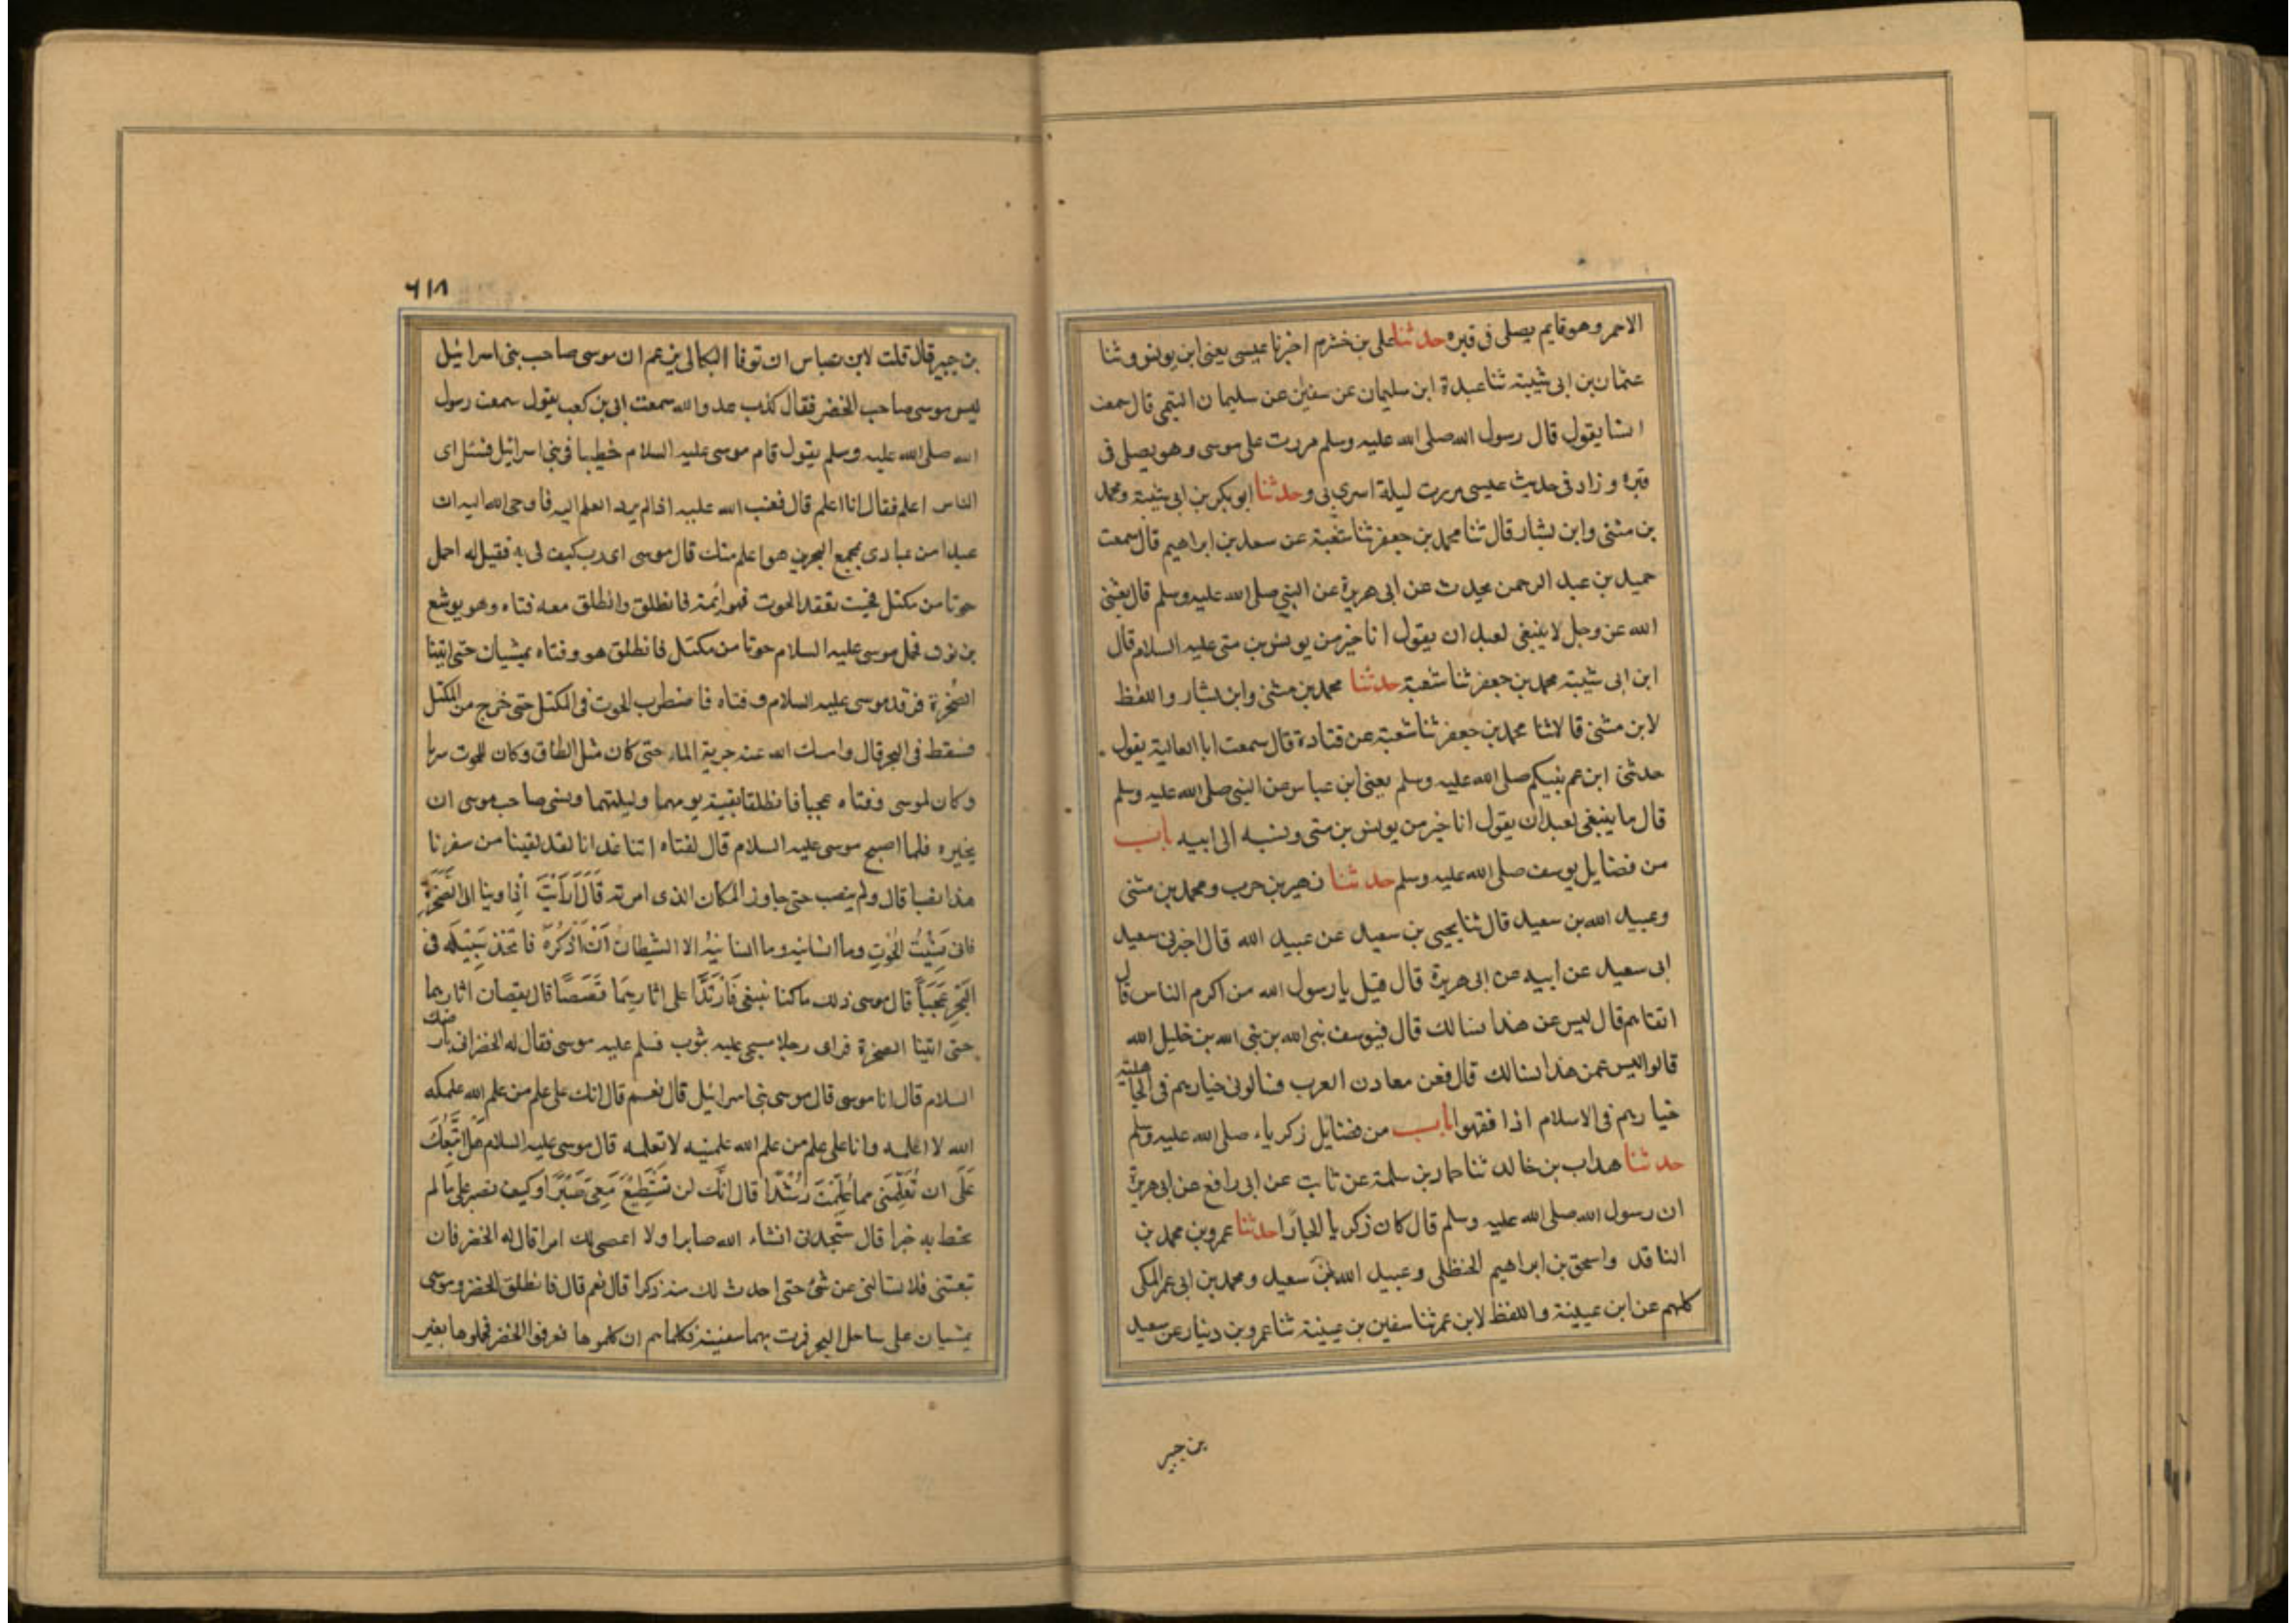 الاحمر وهو قايم يصلى فى قبره حدثنا على بن خشرم اخبرنا عيسى يعنى ابن يونس وثنا
عثمان بن ابى شيبة ثنا عبدة ابن سليمان عن سفين عن سليمان التيمى قال سمعت
انسا يقول قال رسول الله صلى الله عليه وسلم مررت على موسى وهو يصلى فى
قبره وزاد فى حديث عيسى مررت ليلة اسرى بى وحدثنا ابو بكر بن ابى شيبة ومحمد
بن مثنى وابن بشار قال ثنا محمد بن جعفر ثنا شعبة عن سعد بن ابراهيم قال سمعت
حميد بن عبد الرحمن يحدث عن ابى هريرة عن النبي صلى الله عليه وسلم قال يعنى
الله عز وجل لا ينبغى لعبد ان يقول انا خير من يونس بن متى عليه السلام قال
ابن ابى شيبة محمد بن جعفر ثنا شعبة حدثنا محمد بن مثنى وابن بشار واللفظ
لابن مثنى قالا ثنا محمد بن جعفر ثنا شعبة عن قتادة قال سمعت ابا العالية يقول
حدثنى ابن عم نبيكم صلى الله عليه وسلم يعنى ابن عباس عن النبى صلى الله عليه وسلم
قال ما ينبغى لعبد ان يقول انا خير من يونس بن متى ونسبه الى ابيه باب
من فضايل يوسف صلى الله عليه وسلم حدثنا زهير بن حرب ومحمد بن مثنى
وعبيد الله بن سعيد قال ثنا يحيى بن سعيد عن عبيد الله قال اخبرنى سعيد
ابى سعيد عن ابيه عن ابى هريرة قال قيل يا رسول الله من اكرم الناس قال
اتقاهم قال ليس عن هذا نسالك قال فيوسف نبى الله بن نبى الله بن خليل الله
قالوا ليس عن هذا نسالك قال فعن معادن العرب فسالونى خيارهم فى الجاهلية
خيارهم فى الاسلام اذا فقهوا باب من فضايل زكرياء صلى الله عليه وسلم
حدثنا هداب بن خالد ثنا حماد بن سلمة عن ثابت عن ابى رافع عن ابى هريرة
ان رسول الله صلى الله عليه وسلم قال كان زكريا نجارًا حدثنا عمرو بن محمد بن
الناقد واسحق بن ابراهيم الحنظلى وعبيد الله بن سعيد ومحمد بن ابى عمر المكى
كلهم عن ابن عيينة واللفظ لابن عمر ثنا سفين بن عيينة ثنا عمرو بن دينار عن سعيد
بن جبير
٦١٨
بن جبير قال قلت لابن عباس ان نوفا البكالى يزعم ان موسى صاحب بنى اسرائيل
ليس موسى صاحب الخضر فقال كذب عدو الله سمعت ابى بن كعب يقول سمعت رسول
الله صلى الله عليه وسلم يقول قام موسى عليه السلام خطيبا فى بنى اسرائيل فسئل اى
الناس اعلم فقال انا اعلم قال فعتب الله عليه اذ لم يرد العلم اليه فاوحى الله اليه ان
عبدا من عبادى بمجمع البحرين هو اعلم منك قال موسى اى رب كيف لى به فقيل له احمل
حوتا من مكتل فحيث تفقد الحوت فهو اثمة فانطلق وانطلق معه فتاه وهو يوشع
بن نون فحمل موسى عليه السلام حوتا من مكتل فانطلق هو وفتاه يمشيان حتى اتينا
الصخرة فرقد موسى عليه السلام وفتاه فاضطرب الحوت فى المكتل حتى خرج من المكتل
فسقط فى البحر قال وامسك الله عنه جرية الماء حتى كان مثل الطاق وكان للحوت سربا
وكان لموسى وفتاه عجبا فانطلقا بقية يومهما وليلتهما ونسى صاحب موسى ان
يخبره فلما اصبح موسى عليه السلام قال لفتاه اتنا غدانا لقد لقينا من سفرنا
هذا نصبا قال ولم ينصب حتى جاوز المكان الذى امر به قَالَ أَرَأَيْتَ اِذ اوينا الى الصَّخْرَةِ
فانى نَسِيْتُ الْحُوْتَ وما انسانيه وما انسانيهُ الا الشيطان اَنْ اَذْكُرَهُ فاتخذ سَبِيْلَه فى
الْبَحْرِ عَجَبًا قال موسى ذلك ما كنا نبغى فَارْتَدَّا على اثارِهِمَا قَصَصًا قال يقصان اثارهما
حتى اتينا الصخرة فراى رجلا مسجى عليه بثوب فسلم عليه موسى فقال له الخضر انى بارضك
السلام قال انا موسى قال موسى بنى اسرائيل قال نعم قال انك على علم من علم الله علمكه
الله لا اعلمه وانا على علم من علم الله علمنيه لا تعلمه قال موسى عليه السلام هَلْ اَتَّبِعُكَ
عَلَى ان تُعَلِّمَنِى مما عُلِّمْتَ رُشْدًا قال اِنَّك لن تَسْتَطِيْعَ مَعِىَ صَبْرًا وكيف تصبر على ما لم
تحط به خبرا قال سَتجدنى انشاء الله صابرا ولا اعصى لك امرا قال له الخضر فان
تبعتنى فلا تسالنى عن شئ حتى احدث لك منه ذكرا قال نعم قال فانطلق الخضر وموسى
يمشيان على ساحل البحر فمرت بهما سفينة فكلماهم ان كلموها فعرفوا الخضر فحملوها بغير